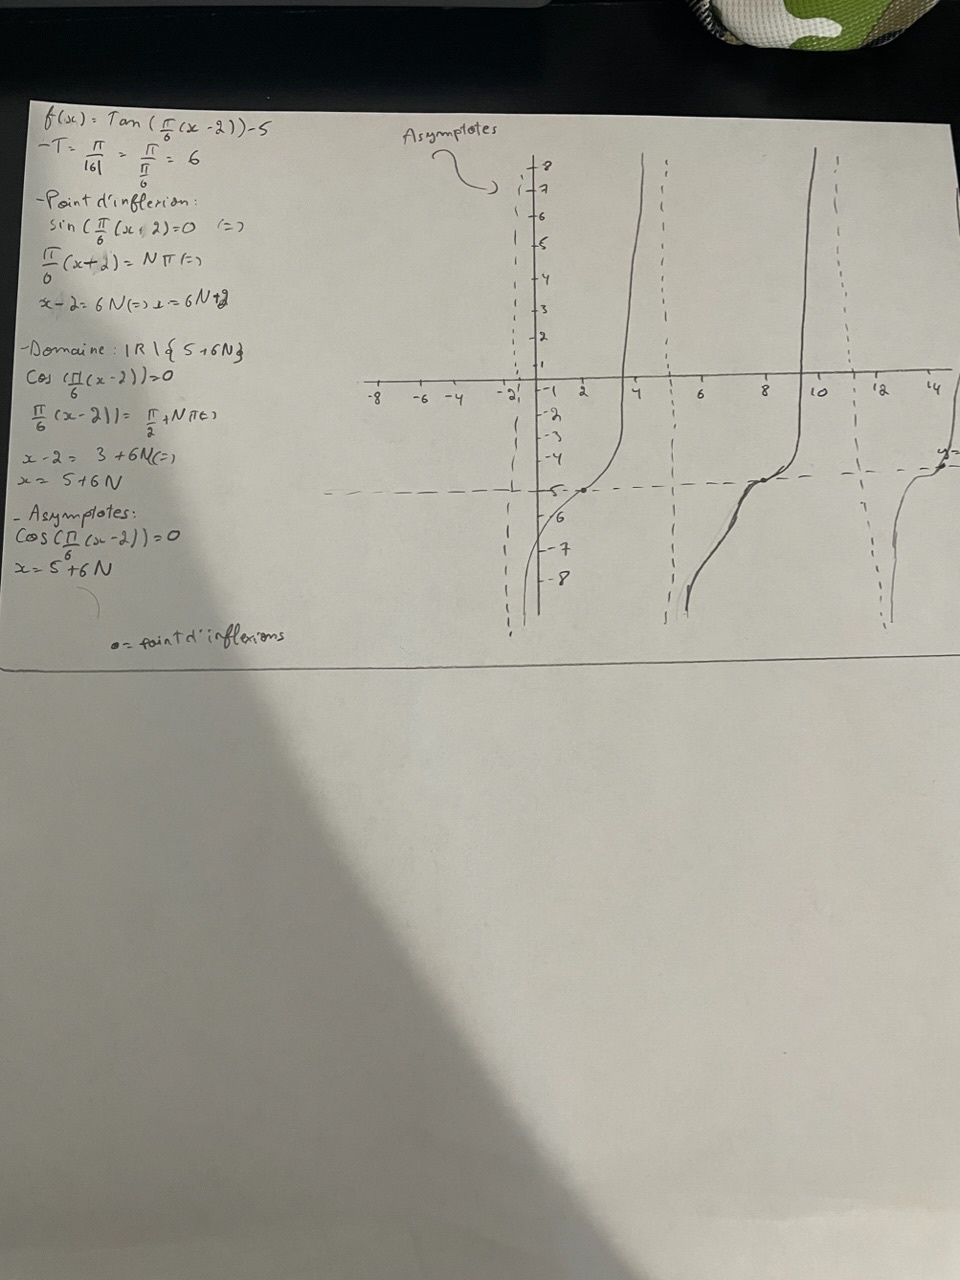 f(x) = Tan (π/6 (x - 2)) - 5
- T = π/|6| = π/(π/6) = 6
- Point d'inflexion:
sin (π/6 (x + 2) = 0 (=)
π/6 (x+2) = Nπ (=)
x - 2 = 6N (=) x = 6N+2
- Domaine : IR \ { 5 + 6N}
Cos (π/6 (x - 2)) = 0
π/6 (x - 2)) = π/2 + Nπ (=)
x - 2 = 3 + 6N (=)
x = 5 + 6N
- Asymplotes:
Cos (π/6 (x - 2)) = 0
x = 5 + 6N
o = point d'inflexions
Asymplotes
8
7
6
5
4
3
2
1
-8 -6 -4 -2 2 4 6 8 10 12 14
-1
-2
-3
-4
-5
-6
-7
-8
y=